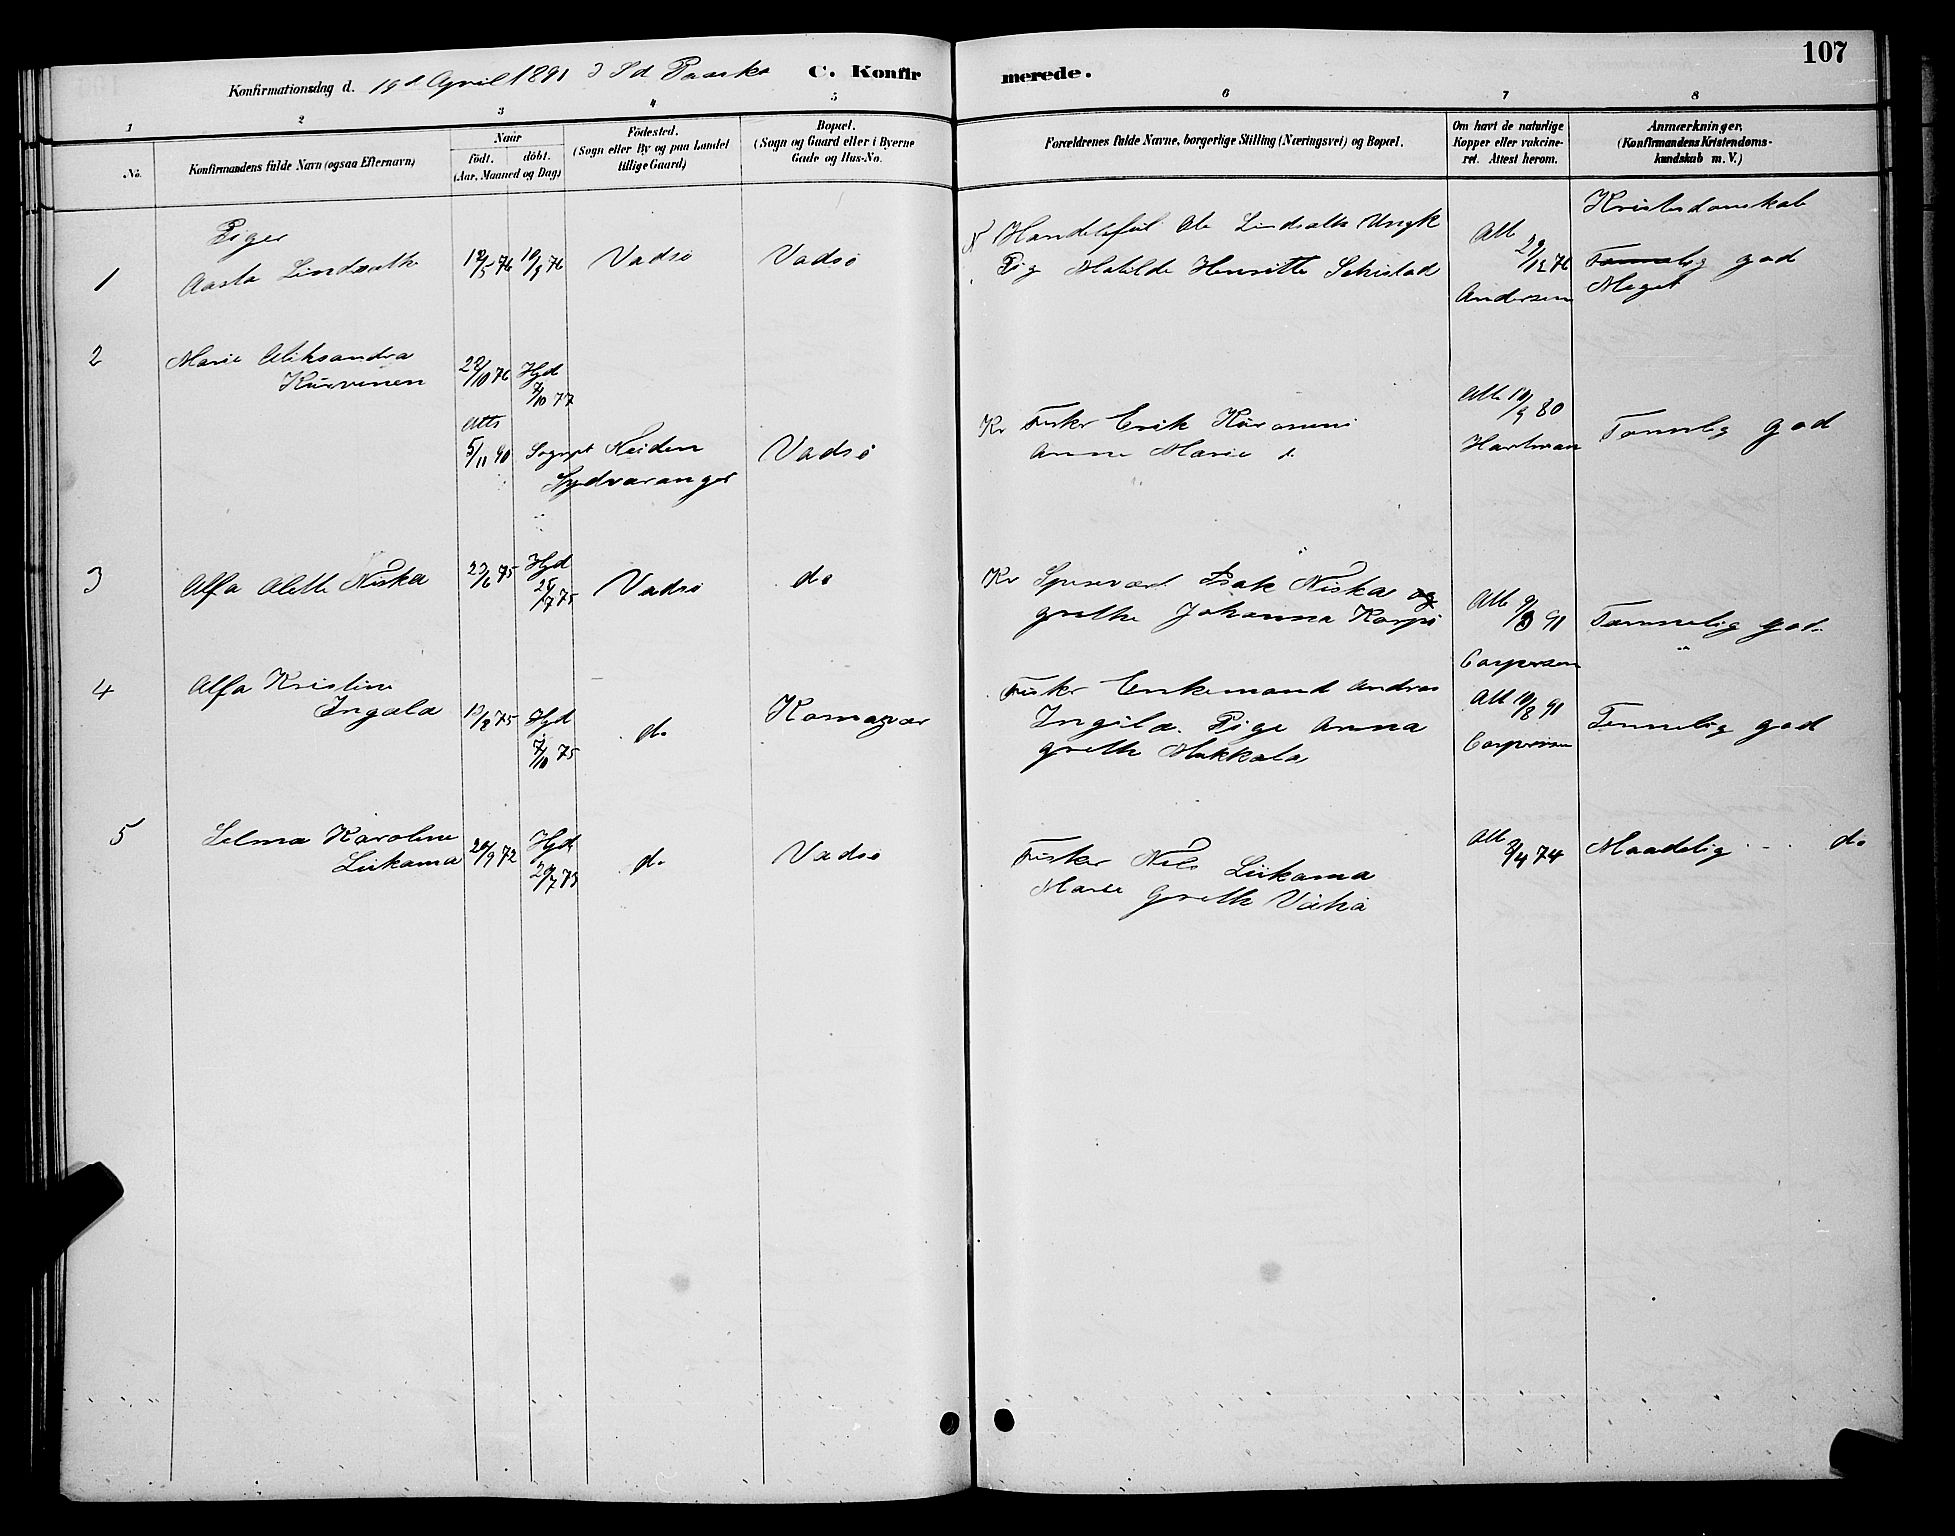 107
Konfirmationsdag d. 19d April 1891 3 Sd Paaske C. Konfirmerede.
1 2 3 4 5 6 7 8
No.
Konfirmandens fulde Navn (ogsaa Efternavn)
Naar
født. døbt.
(Aar, Maaned og Dag)
Fødested.
(Sogn eller By og paa Landet
tillige Gaard)
Bopæl.
(Sogn og Gaard eller i Byerne
Gade og Hus-No.
Forældrenes fulde Navne, borgerlige Stilling (Næringsvei) og Bopæl.
Om havt de naturlige
Kopper eller vakcine-
ret. Attest herom.
Anmærkninger.
(Konfirmandens Kristendoms-
kundskab m. V.)
Piger
1 Aasta Lindsæthe 12/5 76 10/9 76 Vadsø Vadsø
N Handelsful Ole Lindsæth Ungk
Pig Matilde Henritte Sekistad
Att 29/12 76
Andersen
Kristedomskab
Temmelig god
Meget
2 Marie Aleksandra
Kurvinen
22/10 76 Hjd 7/10 77
Atts
5/11 90 Sognpt Neiden
Sydvaranger
Vadsø
Kv Fisker Erik
Anne Marie
Att 10/9 80
Hartman
Temmelig god
3 Alfa Alette Niska 23/6 75 Hjd 25/7 75 Vadsø do
Kv Isak Niska og
Grethe Johanna Karpi
Att 9/3 91
Caspersen
Temmelig god
4 Alfa Kristine
Ingala
13/8 75 Hjd 7/10 75 do Komagvær
Fisker Enkemand Andras
Ingila. Pige Anna
Greth Mukkala
Att 10/8 91
Caspersen
Temmelig god
5 Selma Karoline
Liikama
20/9 72 Hjd 20/7 73 do Vadsø
Fisker Nils Liikama
Marie Greth
Att 2/4 74
Maadelig do